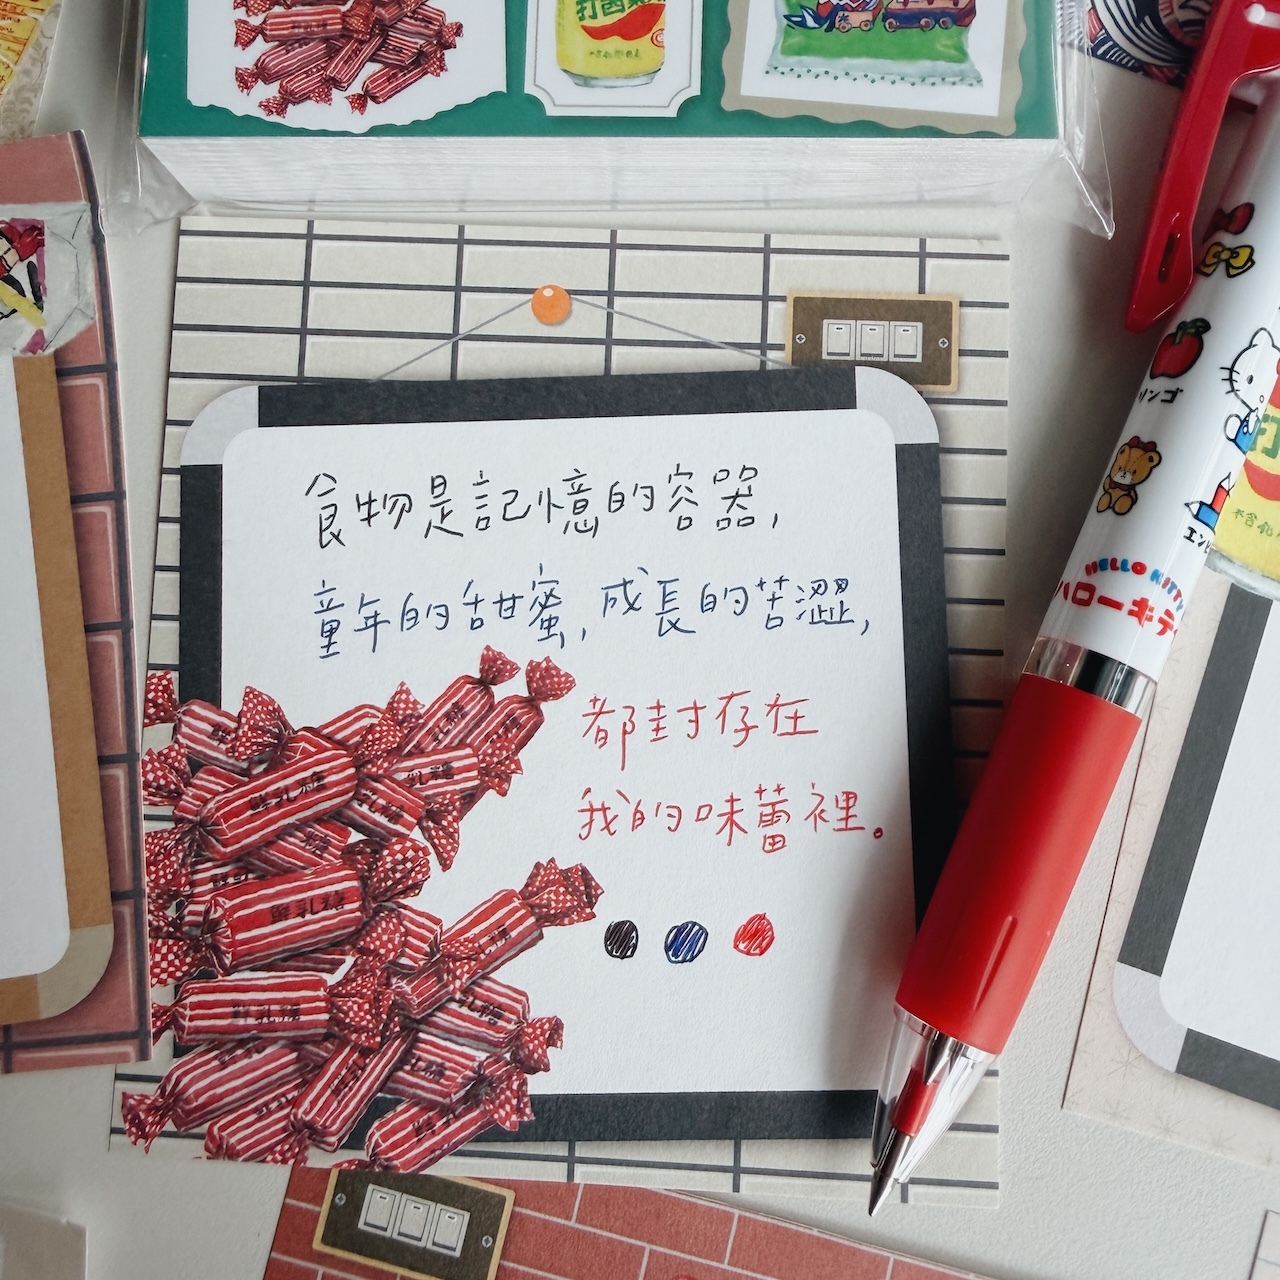 食物是記憶的容器,
童年的甜蜜,成長的苦澀,
都封存在
我的味蕾裡。
鮮乳糖
鮮乳糖
鮮乳糖
乳糖
リンゴ
HELLO KITTY
ハローキティ